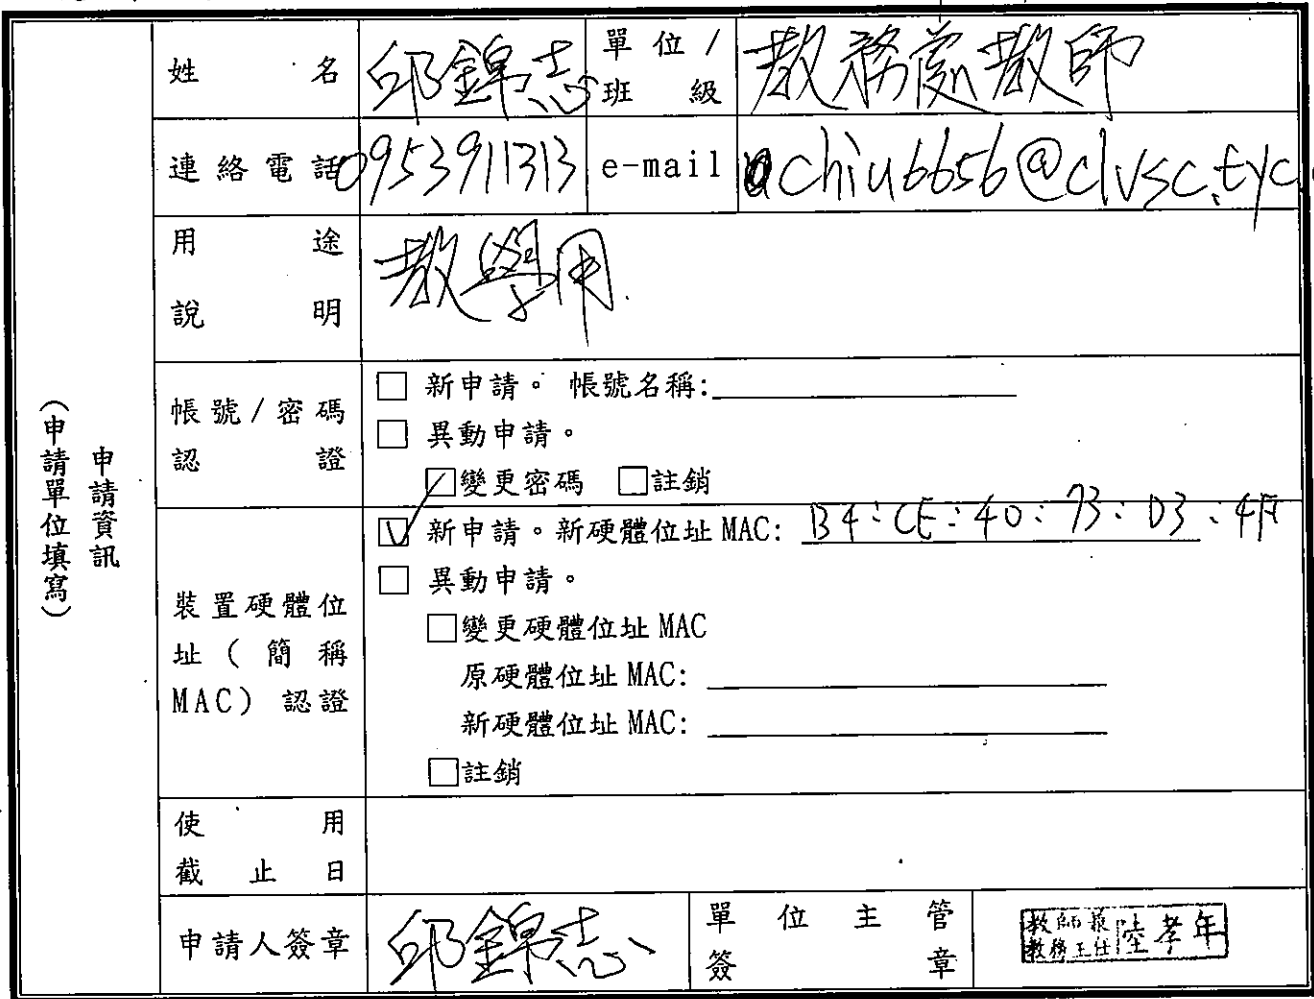 姓名 邱錦志 單位/班級 教務處教師
連絡電話 0953911313 e-mail chiu6656@clvsc.tyc
用途說明 教學用
申請資訊
(申請單位填寫)
帳號/密碼認證
□ 新申請。 帳號名稱:
□ 異動申請。
□變更密碼 □註銷
裝置硬體位址(簡稱MAC)認證
☑ 新申請。新硬體位址 MAC: B4:CE:40:73:D3:4A
□ 異動申請。
□變更硬體位址 MAC
原硬體位址 MAC:
新硬體位址 MAC:
□註銷
使用截止日
申請人簽章 邱錦志 單位主管簽章
教師兼
教務主任 陸孝年